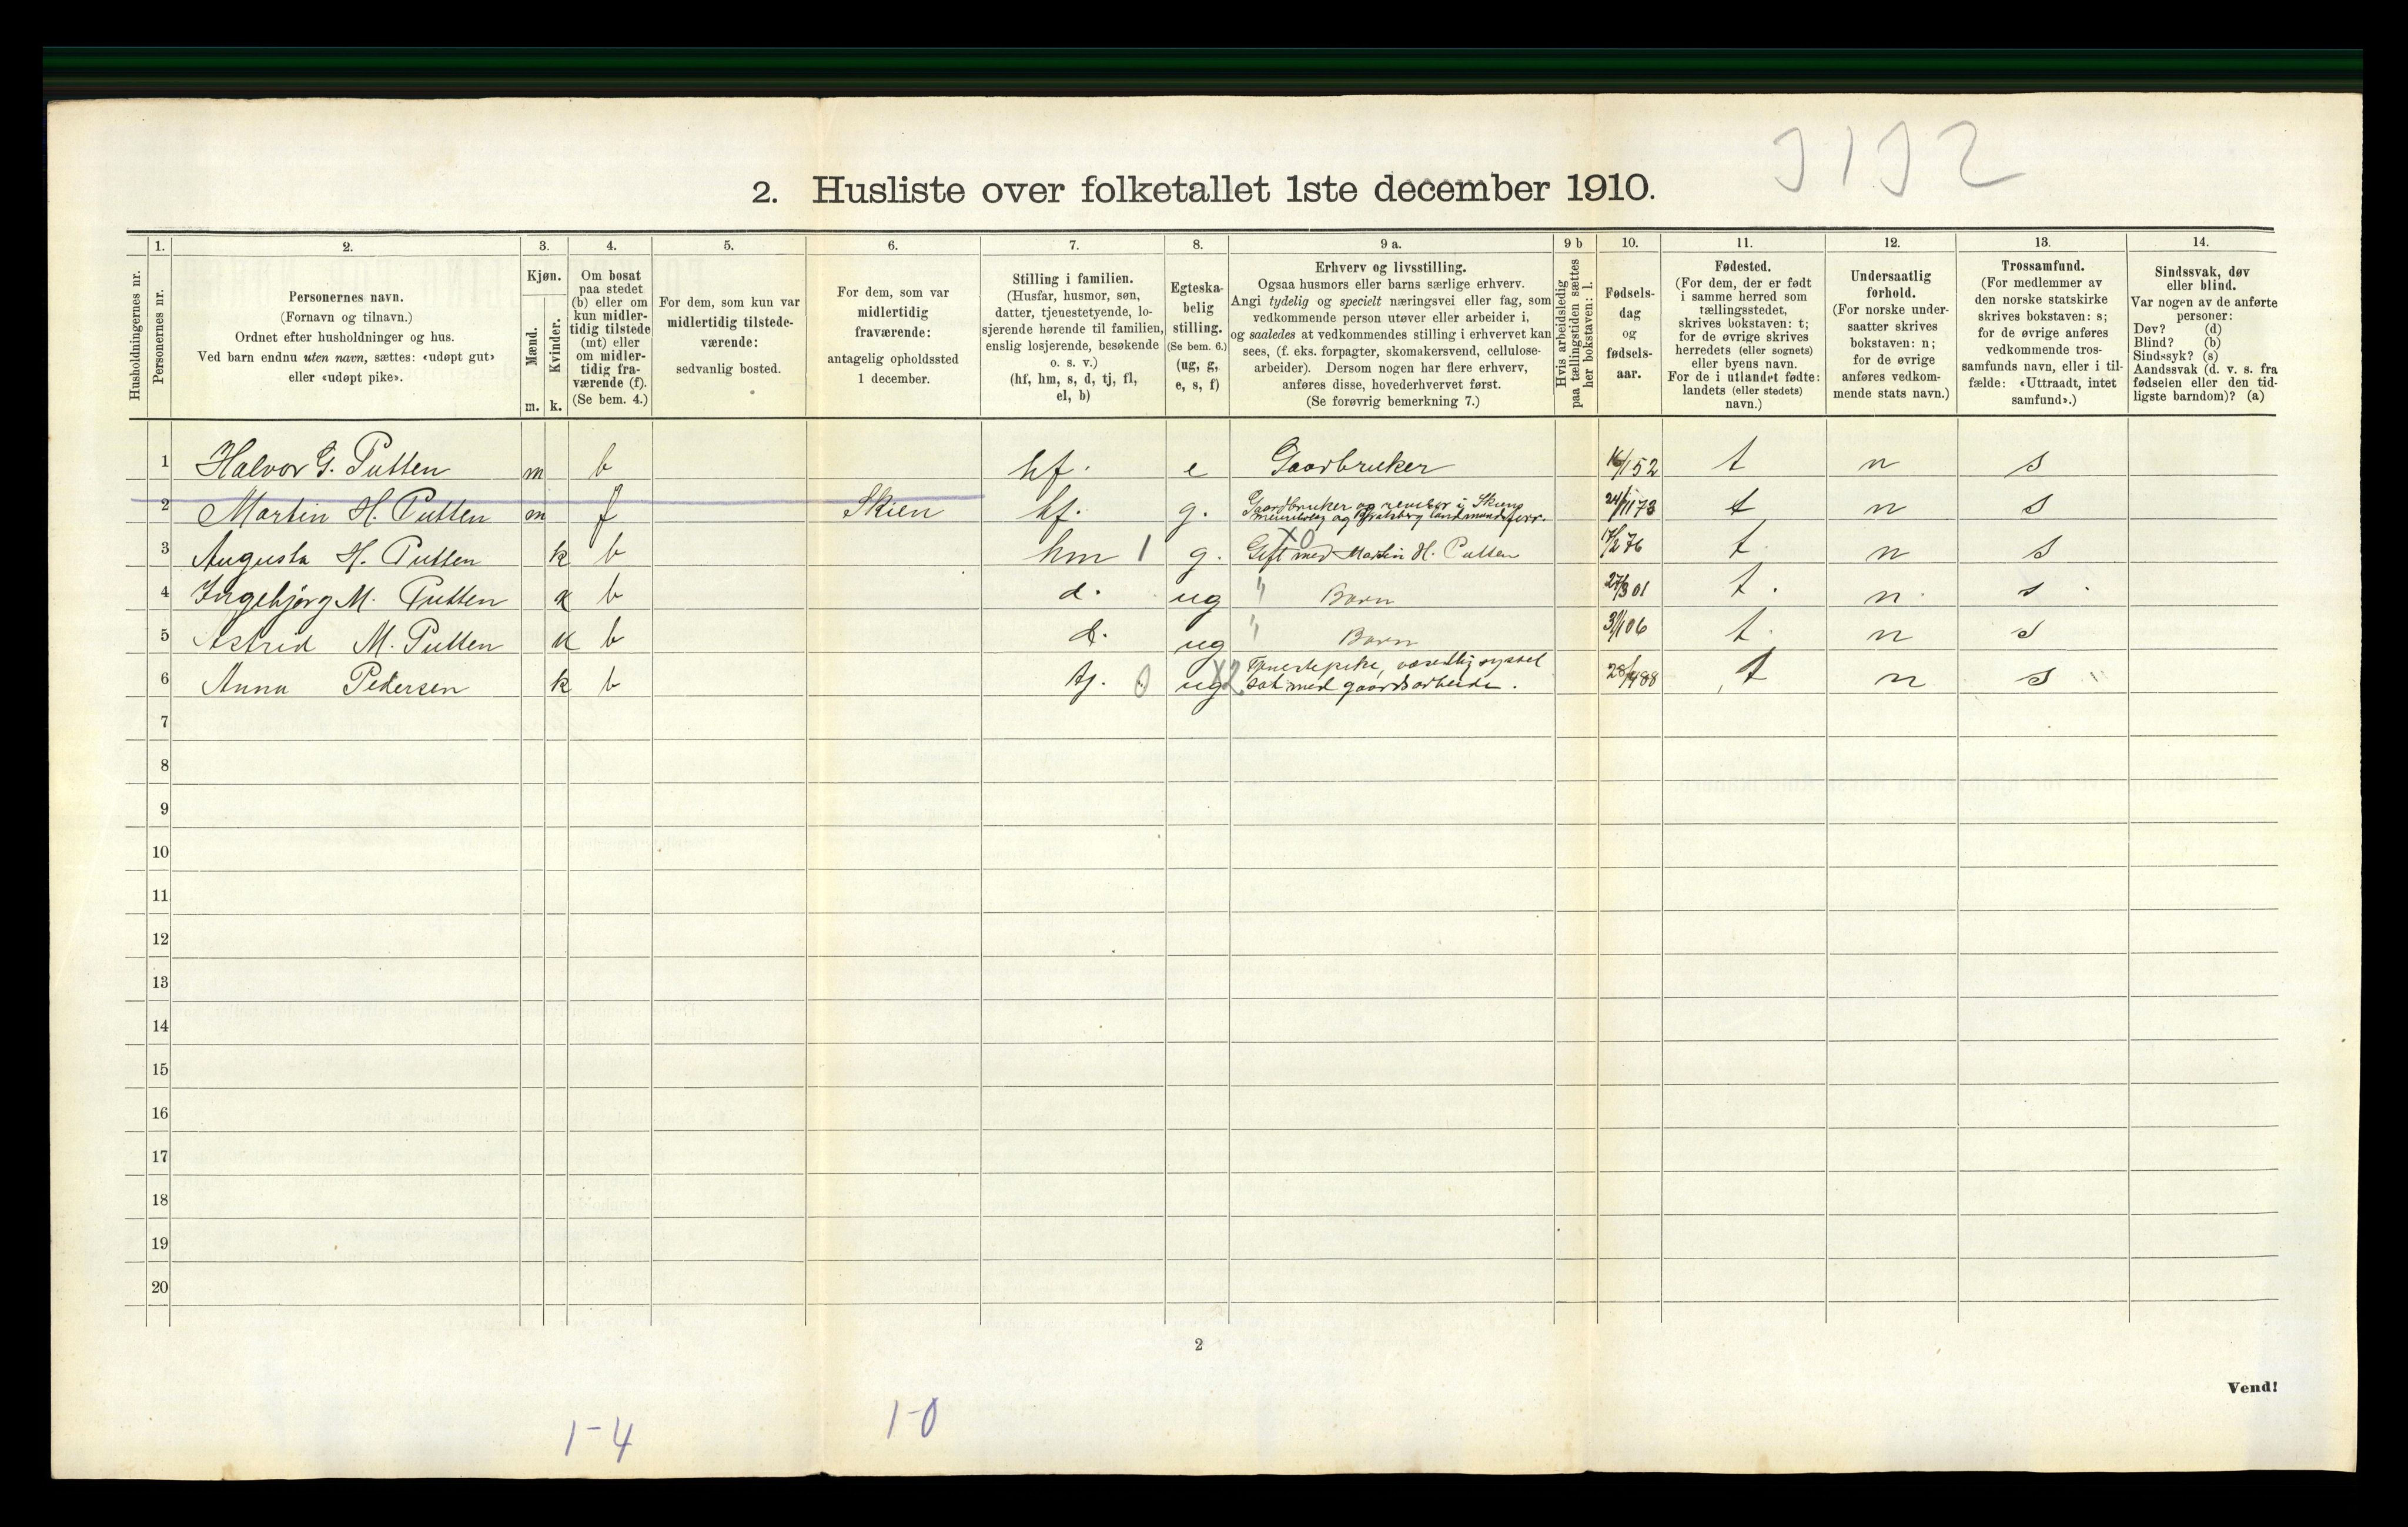 2. Husliste over folketallet 1ste december 1910.
Husholdningernes nr.
1.
Personernes nr.
2.
Personernes navn.
(Fornavn og tilnavn.)
Ordnet efter husholdninger og hus.
Ved barn endnu uten navn, sættes: «udøpt gut»
eller «udøpt pike».
3.
Kjøn.
Mænd. Kvinder.
m. k.
4.
Om bosat
paa stedet
(b) eller om
kun midler-
tidig tilstede
(mt) eller
om midler-
tidig fra-
værende (f).
(Se bem. 4.)
5.
For dem, som kun var
midlertidig tilstede-
værende:
sedvanlig bosted.
6.
For dem, som var
midlertidig
fraværende:
antagelig opholdssted
1 december.
7.
Stilling i familien.
(Husfar, husmor, søn,
datter, tjenestetyende, lo-
sjerende hørende til familien,
enslig losjerende, besøkende
o. s. v.)
(hf, hm, s, d, tj, fl,
el, b)
8.
Egteska-
belig
stilling.
(Se bem. 6.)
(ug, g,
e, s, f)
9 a.
Erhverv og livsstilling.
Ogsaa husmors eller barns særlige erhverv.
Angi tydelig og specielt næringsvei eller fag, som
vedkommende person utøver eller arbeider i,
og saaledes at vedkommendes stilling i erhvervet kan
sees, (f. eks. forpagter, skomakersvend, cellulose-
arbeider). Dersom nogen har flere erhverv,
anføres disse, hovederhvervet først.
(Se forøvrig bemerkning 7.)
9 b
Hvis arbeidsledig
paa tællingstiden sættes
her bokstaven: l.
10.
Fødsels-
dag
og
fødsels-
aar.
11.
Fødested.
(For dem, der er født
i samme herred som
tællingsstedet,
skrives bokstaven: t;
for de øvrige skrives
herredets (eller sognets)
eller byens navn.
For de i utlandet fødte:
landets (eller stedets)
navn.)
12.
Undersaatlig
forhold.
(For norske under-
saatter skrives
bokstaven: n;
for de øvrige
anføres vedkom-
mende stats navn.)
13.
Trossamfund.
(For medlemmer av
den norske statskirke
skrives bokstaven: s;
for de øvrige anføres
vedkommende tros-
samfunds navn, eller i til-
fælde: «Uttraadt, intet
samfund».)
14.
Sindssvak, døv
eller blind.
Var nogen av de anførte
personer:
Døv? (d)
Blind? (b)
Sindssyk? (s)
Aandssvak (d. v. s. fra
fødselen eller den tid-
ligste barndom)? (a)
1 Halvor G. Putten m b hf. e Gaarbruker 16/1 52 t n s
2 Martin H. Putten m f Skien hf. g. Gaardbruker og i Skiens og Bratsberg 24/11 73 t n s
3 Augusta H. Putten k b hm 1 g. Gift med Martin H. Putten 17/2 76 t n s
4 Ingebjørg M. Putten k b d. ug " Barn 27/3 01 t. n. s
5 Astrid M. Putten k b d. ug " Barn 31/1 06 t. n s
6 Anna Pedersen k b tj. 0 ug Tjenestepike, væsentlig syssel
sat med gaardsarbeide. 28/4 88 t n s
7
8
9
10
11
12
13
14
15
16
17
18
19
20
2
Vend!
1-4
1-0